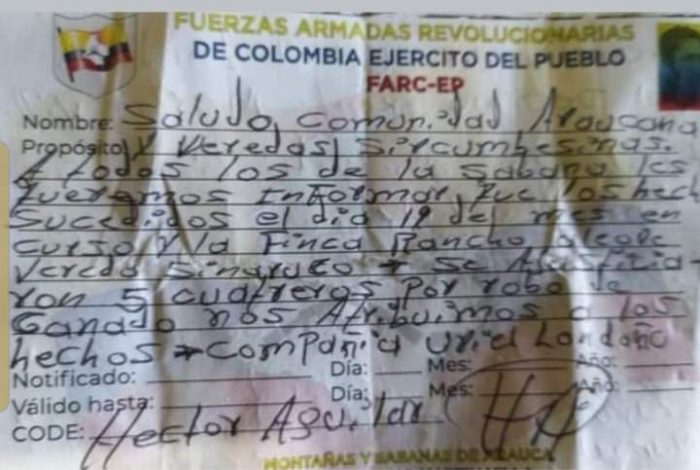 FUERZAS ARMADAS REVOLUCIONARIAS
DE COLOMBIA EJERCITO DEL PUEBLO
FARC-EP
Nombre: Saludo, comunidad Araucana
Propósito: Y Veredas, Sircumbesinas.
A todos los de la Sabana les
Queremos Informar que los hec
Sucedidos el dia 19 del mes en
curso y la Finca Rancho
Vereda Sinaruco + Se
ron 5 cuatreros por robo de
Ganado nos Atribuimos a los
hechos → compañia Uriel Londoño
Notificado: Día: Mes: Año:
Válido hasta: Día: Mes: Año:
CODE: Hector Aguilar HA
MONTAÑAS Y SABANAS DE ARAUCA